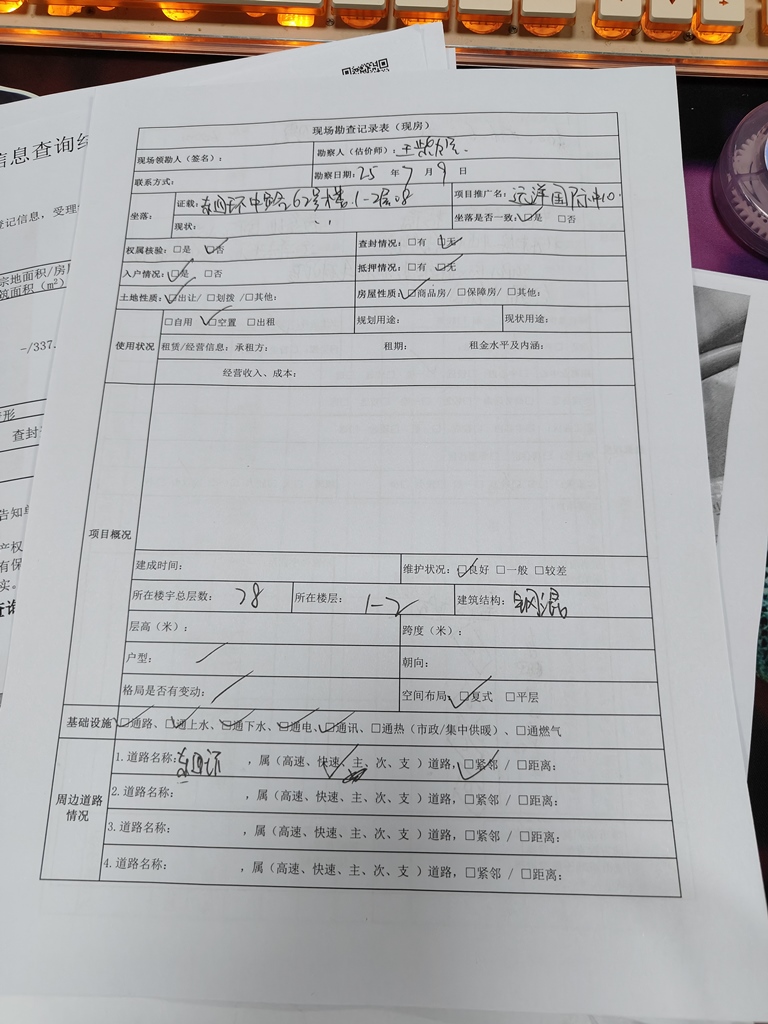 息查询结
登记信息，受理
宗地面积/房屋
筑面积（m²）
-/337.
查封
告知单
产权
有保
实。
现场勘查记录表（现房）
现场领勘人（签名）： 勘察人（估价师）：
联系方式： 勘察日期：25 年 7 月 9 日
坐落： 证载：东四环中路62号楼1-2层 项目推广名：远洋国际中心
现状： 坐落是否一致：☑是 □否
权属核验：□是 ☑否 查封情况：□有 ☑无
入户情况：☑是 □否 抵押情况：□有 ☑无
土地性质：☑出让/ □划拨 /□其他： 房屋性质：☑商品房/ □保障房/ □其他：
使用状况 □自用 ☑空置 □出租 规划用途： 现状用途：
租赁/经营信息：承租方： 租期： 租金水平及内涵：
经营收入、成本：
项目概况
建成时间： 维护状况：☑良好 □一般 □较差
所在楼宇总层数：28 所在楼层：1-2 建筑结构：钢混
层高（米）： 跨度（米）：
户型：/ 朝向：
格局是否有变动：/ 空间布局：☑复式 □平层
基础设施 ☑通路、☑通上水、☑通下水、☑通电、☑通讯、□通热（市政/集中供暖）、□通燃气
周边道路情况 1.道路名称：东四环 ，属（高速、快速、主、次、支）道路，☑紧邻 / □距离：
2.道路名称： ，属（高速、快速、主、次、支 ）道路，□紧邻 / □距离：
3.道路名称： ，属（高速、快速、主、次、支 ）道路，□紧邻 / □距离：
4.道路名称： ，属（高速、快速、主、次、支 ）道路，□紧邻 / □距离：